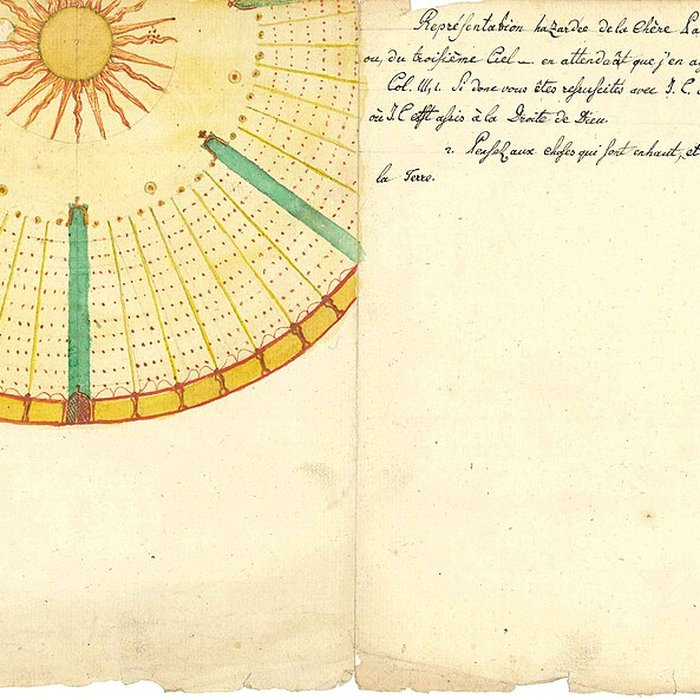 Représentation hazardée de la Chère Pa
ou, du troisième Ciel — en attendant que j'en a
Col. III, 1. Si donc vous êtes resuscités avec J. C.
où J. C est assis à la Droite de Dieu.
2. Pensez aux choses qui sont enhaut, et
la Terre.